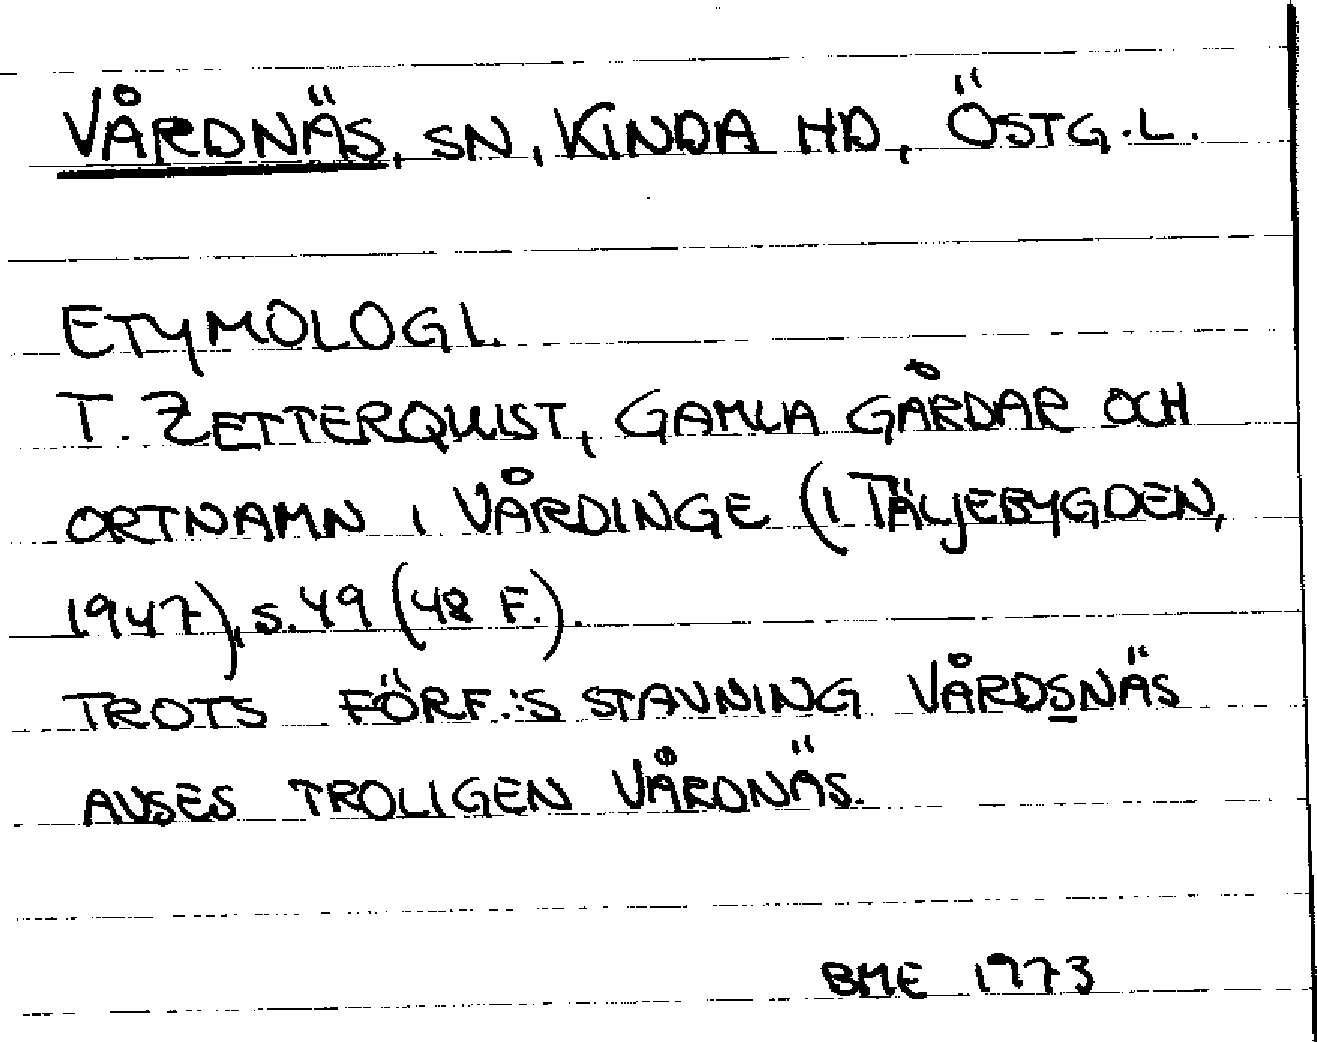 VÅRDNÄS, SN, KINDA HD, ÖSTG.L.
ETYMOLOGI.
T. ZETTERQUIST, GAMLA GÅRDAR OCH
ORTNAMN I VÅRDINGE (I TÄLJEBYGDEN,
1947), S. 49 (48 F.).
TROTS FÖRF.:S STAVNING VÅRDSNÄS
AVSES TROLIGEN VÅRDNÄS.
BME 1973